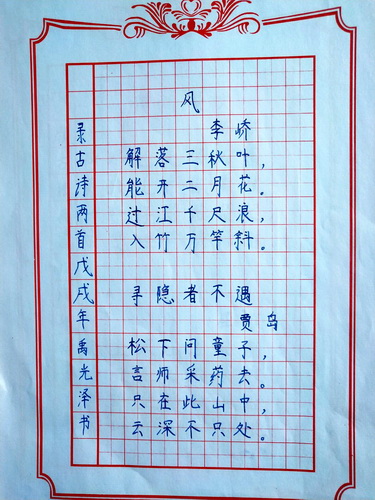 风
李峤
解落三秋叶，
能开二月花。
过江千尺浪，
入竹万竿斜。
寻隐者不遇
贾岛
松下问童子，
言师采药去。
只在此山中，
云深不只处。
录古诗两首戊戌年禹光泽书